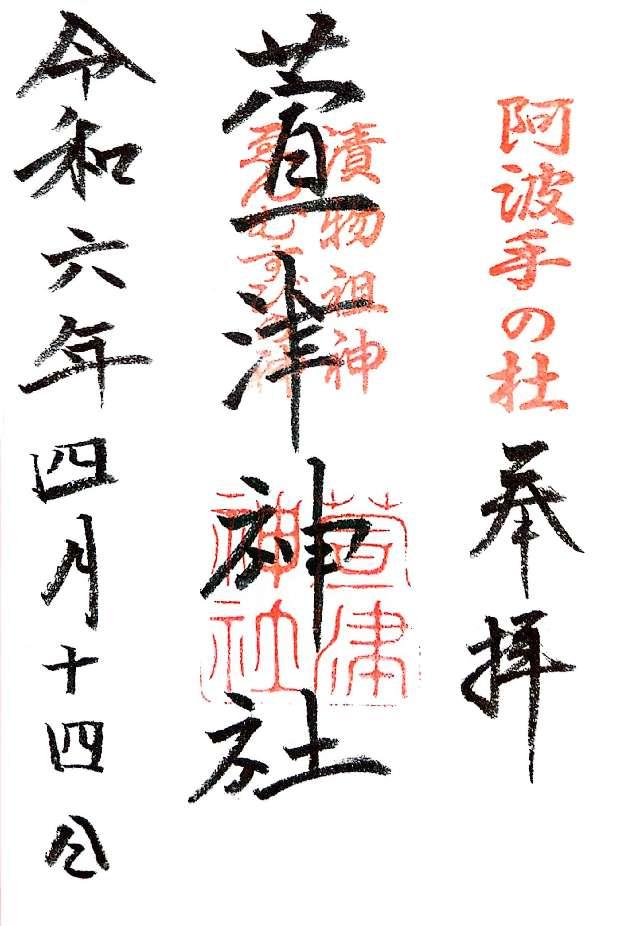 阿波手の杜
奉拝
漬物祖神
萱津神社
萱津
神社
令和六年四月十四日